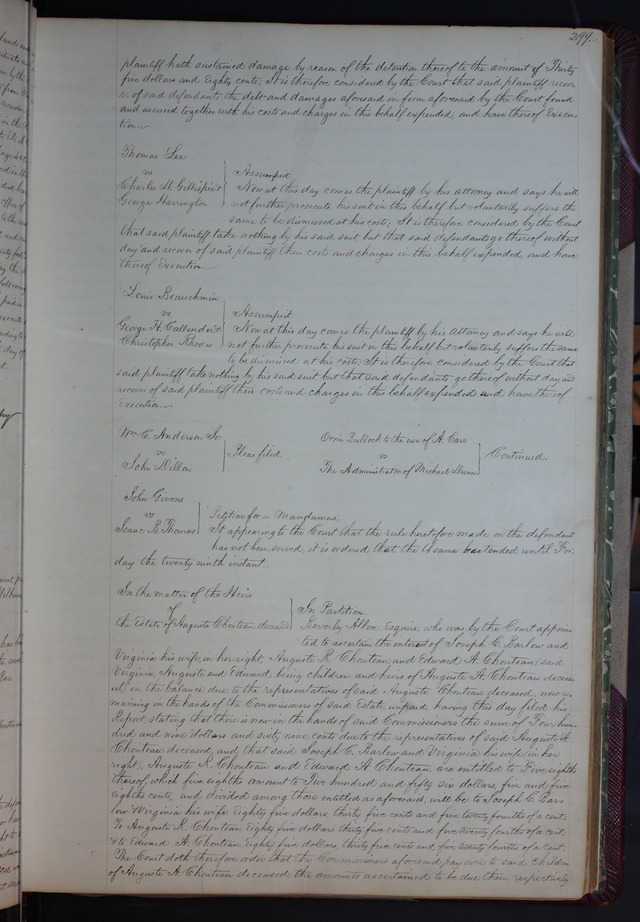 299.
plaintiff hath sustained damage by reason of the detention thereof to the amount of Thirty
five dollars and Eighty cents. It is therefore considered by the Court that said plaintiff recov-
er of said defendants the debt and damages aforesaid in form aforesaid by the Court found
and assessed together with his costs and charges in this behalf expended, and have thereof Execu
tion.
Thomas Lee
vs
Charles D. Gillispie &
George Harrington
Assumpsit
Now at this day comes the plaintiff by his attorney and says he will
not further prosecute his suit in this behalf but voluntarily suffers the
same to be dismissed at his costs; It is therefore considered by the Court
that said plaintiff take nothing by his said suit but that said defendants go thereof without
day and recover of said plaintiff their costs and charges in this behalf expended, and have
thereof Execution.
Louis Beauchmin
vs
George H. Callender &
Christopher Rhodes
Assumpsit
Now at this day comes the plaintiff by his Attorney and says he will
not further prosecute his suit in this behalf but voluntarily suffers the same
to be dismissed at his costs; It is therefore considered by the Court that
said plaintiff take nothing by his said suit but that said defendants go thereof without day and
recover of said plaintiff their costs and charges in this behalf expended and have thereof
Execution.
Wm. C. Anderson Jr.
vs
John Dillon
Pleas filed.
Orvin Bullock to the use of A. Carr
vs
The Administrator of Michael Dunn
Continued
John Givens
vs
Isaac B. Thomas
Petition for a Mandamus.
It appearing to the Court that the rule heretofore made on the defendant
has not been served, it is ordered that the same be extended until Fri-
day the twenty ninth instant.
In the matter of the Heirs
of
the Estate of Auguste Chouteau deceased
In Partition
Beverly Allen Esquire, who was by the Court appoin
ted to ascertain the interest of Joseph C. Barlow and
Virginia his wife, in her right, Auguste R. Chouteau and Edward A. Chouteau, said
Virginia Auguste and Edward being children and heirs of Auguste A. Chouteau deceas
ed, in the balance due to the representatives of said Auguste Chouteau deceased, now re-
maining in the hands of the Commissioners of said Estate unpaid, having this day filed his
Report stating that there is now in the hands of said Commissioners the sum of Four hun-
dred and nine dollars and sixty nine cents due to the representatives of said Auguste A.
Chouteau deceased, and that said Joseph C. Barlow and Virginia his wife in her
right, Auguste R. Chouteau and Edward A. Chouteau, are entitled to Five eighths
thereof, which five eighths amount to Two hundred and fifty six dollars, five and five
eighths cents, and divided among those entitled as aforesaid, will be to Joseph C. Bar-
low & Virginia his wife Eighty five dollars thirty five cents and five twenty fourths of a cent;
To Auguste R. Chouteau Eighty five dollars thirty five cents and five twenty fourths of a cent,
& to Edward A. Chouteau Eighty five dollars, thirty five cents and five twenty fourths of a cent;
The Court doth therefore order that the Commissioners aforesaid pay over to said children
of Auguste A. Chouteau deceased the amounts ascertained to be due them respectively